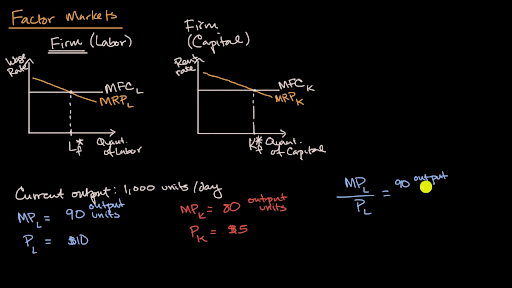 Factor Markets
Firm (Labor)
Firm (Capital)
Wage Rate
MFC_L
MRP_L
L_f*
Quant. of Labor
Rent rate
MFC_K
MRP_K
K_f*
Quant. of Capital
Current output: 1,000 units/day
MP_L = 90 output units
P_L = $10
MP_K = 80 output units
P_K = $5
MP_L / P_L = 90 output